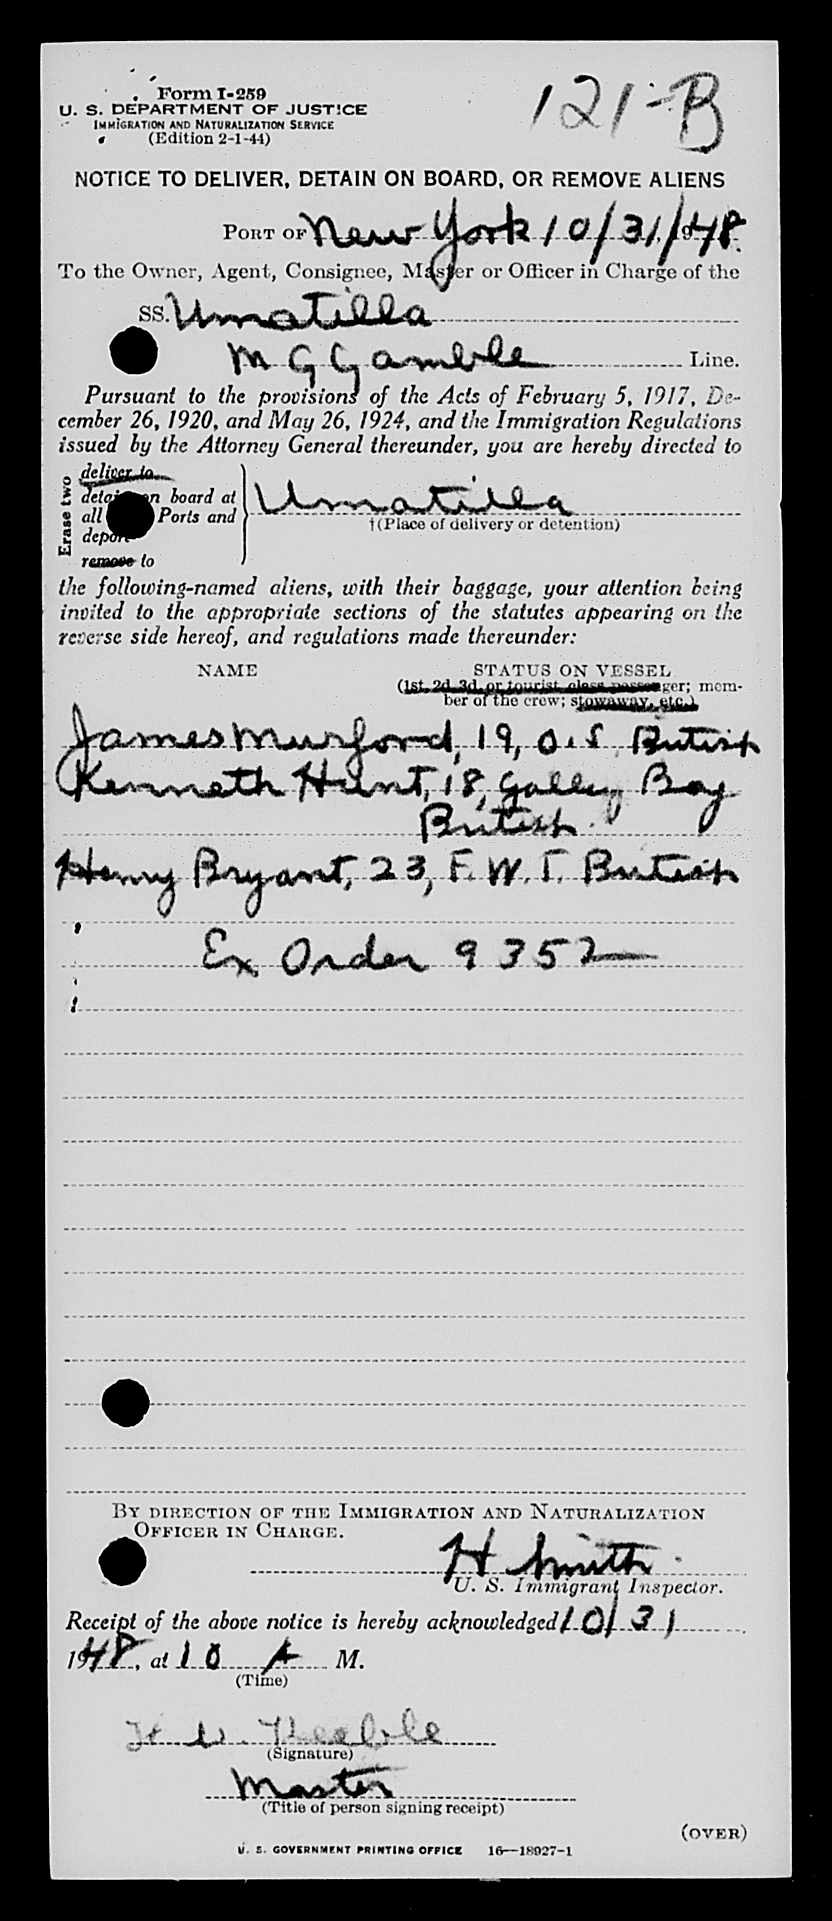 Form I-259
121-B
U. S. DEPARTMENT OF JUSTICE
IMMIGRATION AND NATURALIZATION SERVICE
(Edition 2-1-44)
NOTICE TO DELIVER, DETAIN ON BOARD, OR REMOVE ALIENS
PORT OF New York 10/31/1948.
To the Owner, Agent, Consignee, Master or Officer in Charge of the
SS. Umatilla
M G Gamble Line.
Pursuant to the provisions of the Acts of February 5, 1917, De-
cember 26, 1920, and May 26, 1924, and the Immigration Regulations
issued by the Attorney General thereunder, you are hereby directed to
Erase two
deliver to
detain on board at
all Ports and
deport
remove to
Umatilla
†(Place of delivery or detention)
the following-named aliens, with their baggage, your attention being
invited to the appropriate sections of the statutes appearing on the
reverse side hereof, and regulations made thereunder:
NAME STATUS ON VESSEL
(1st, 2d, 3d, or tourist class passenger; mem-
ber of the crew; stowaway, etc.)
James Murford, 19, O.S. British
Kenneth Hunt, 18, Galley Boy
British
Henry Bryant, 23, F. W. T. British
Ex Order 9352
BY DIRECTION OF THE IMMIGRATION AND NATURALIZATION
OFFICER IN CHARGE.
H Smith
U. S. Immigrant Inspector.
Receipt of the above notice is hereby acknowledged 10/31
1948, at 10 A M.
(Time)
Keeble
(Signature)
Master
(Title of person signing receipt)
(OVER)
U. S. GOVERNMENT PRINTING OFFICE 16—18927-1